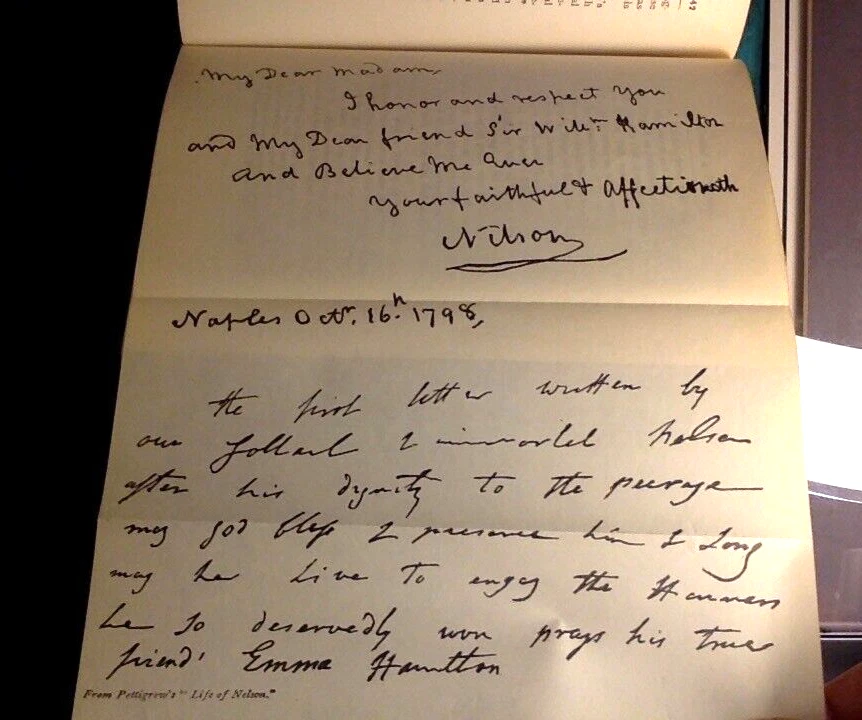 My Dear Madam,
I honor and respect you
and My Dear friend Sir Willm. Hamilton
and Believe Me Ever
your faithful & Affectionate
Nelson
Naples Octr. 16th 1798,
the first letter written by
our gallant & immortal Nelson
after his dignity to the peerage
may god bless & preserve him & long
may he live to enjoy the Honners
he so deservedly won prays his true
friend Emma Hamilton
From Pettigrew's "Life of Nelson."